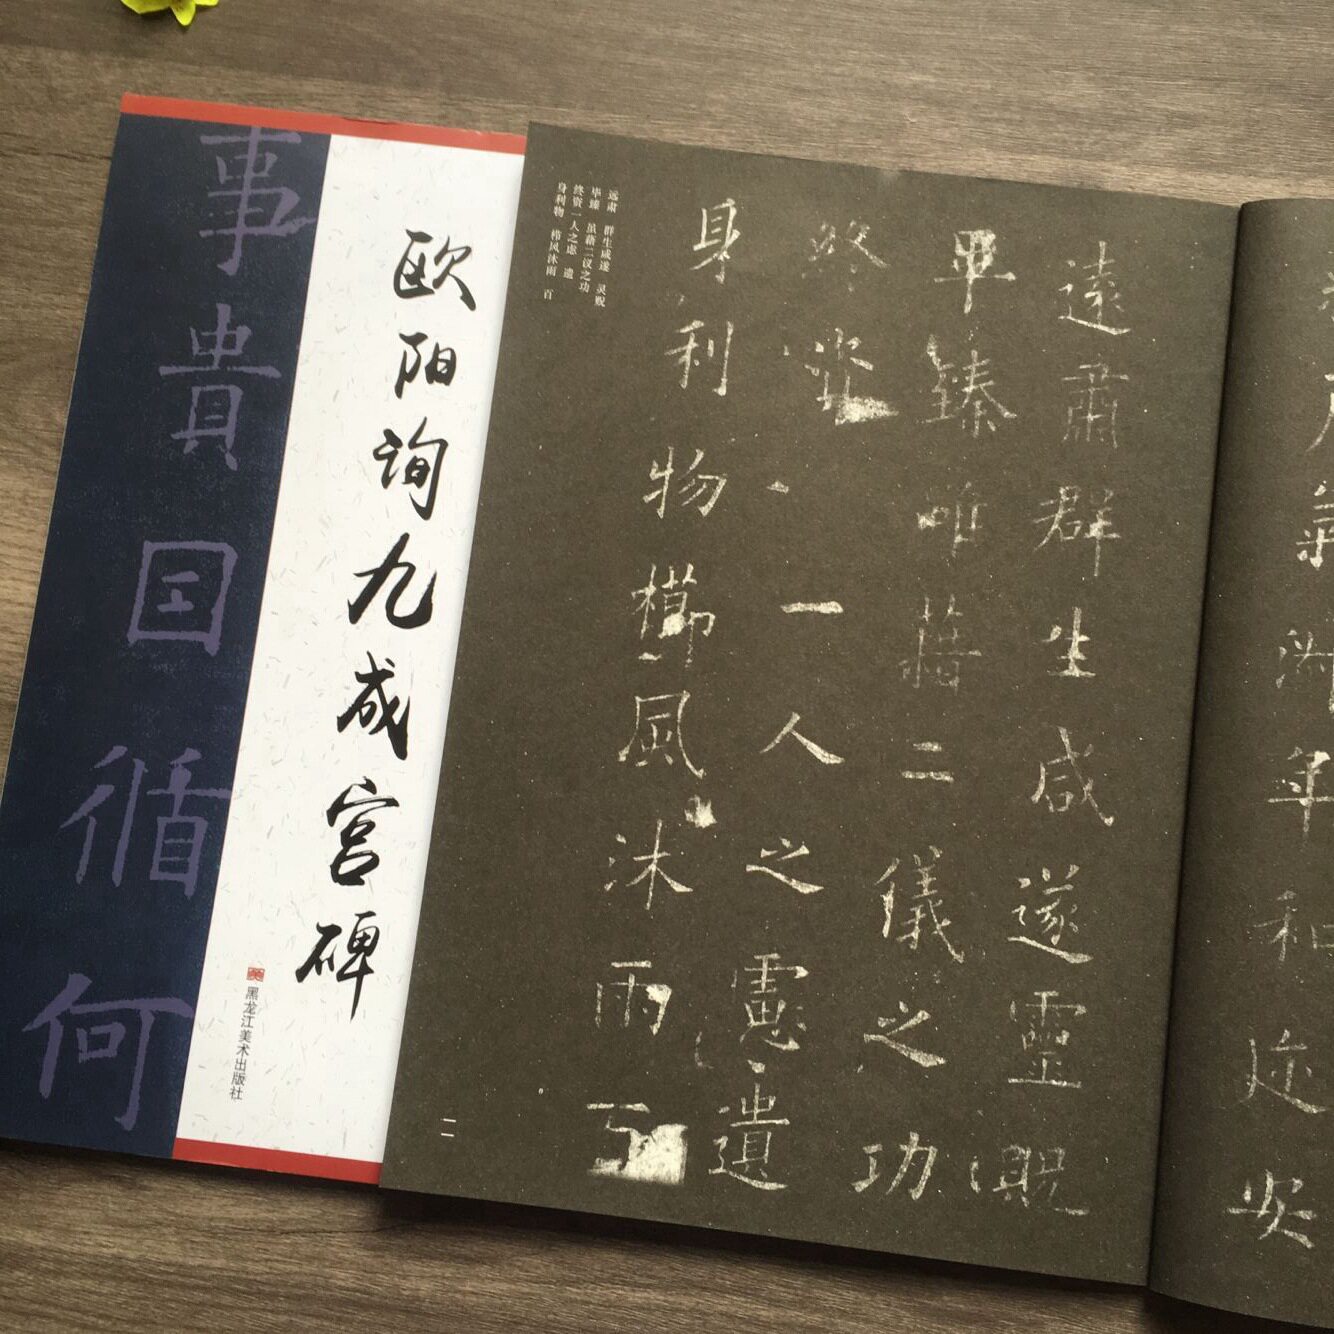 事貴国循何
欧阳询九成宫碑
美 黑龙江美术出版社
远肃 群生咸遂 灵贶
毕臻 虽藉二仪之功
终资一人之虑 遗
身利物 栉风沐雨 百
氣淑年和迩安
遠肅群生咸遂靈貺
畢臻雖藉二儀之功
終資一人之慮遺
身利物櫛風沐雨百
一一